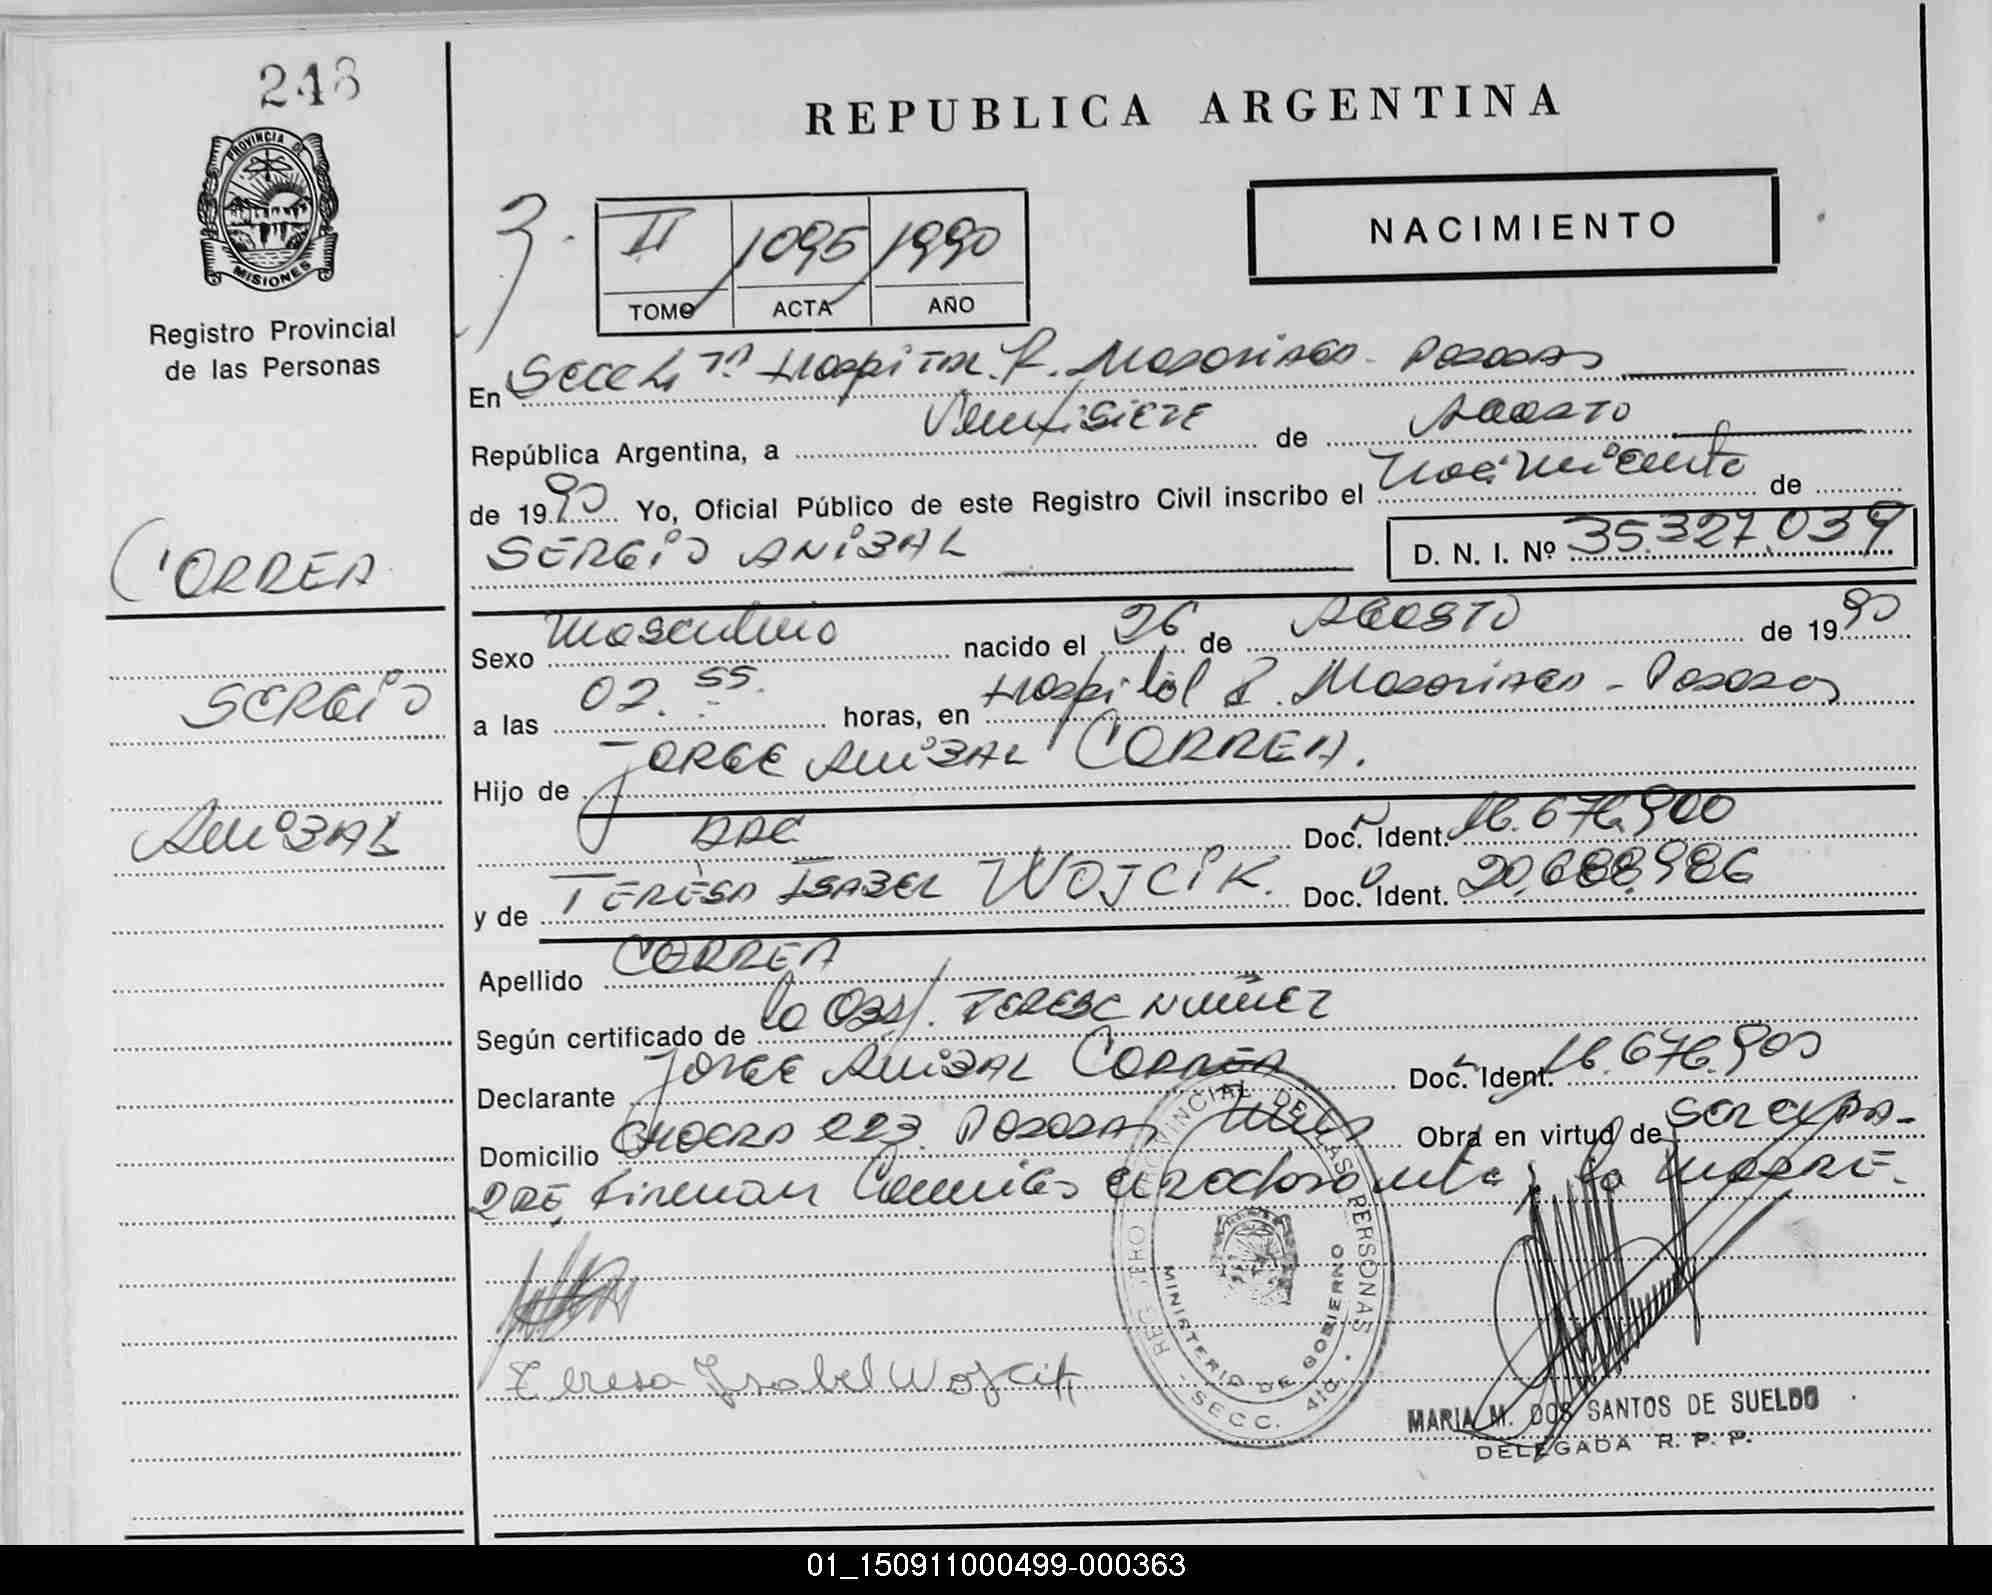 248
PROVINCIA DE
MISIONES
Registro Provincial
de las Personas
CORREA
SERGIO
ANIBAL
REPUBLICA ARGENTINA
NACIMIENTO
II 1095 1990
TOMO ACTA AÑO
En Secc 4ta Hospital R. Madariaga - Posadas
República Argentina, a Veintisiete de Agosto
de 1990 Yo, Oficial Público de este Registro Civil inscribo el Nacimiento de
SERGIO ANIBAL D. N. I. Nº 35.327.039
Sexo Masculino nacido el 26 de AGOSTO de 1990
a las 02.55 horas, en Hospital R. Madariaga - Posadas
Hijo de JORGE ANIBAL CORREA.
ARG Doc. Ident. 16.676.900
y de TERESA ISABEL WOJCIK. Doc. Ident. 20.688.986
Apellido CORREA
Según certificado de la Obst. TERESA NUÑEZ
Declarante JORGE ANIBAL CORREA Doc. Ident. 16.676.900
Domicilio Chacra 223 Posadas Mnes Obra en virtud de ser el pa-
dre, firman la madre.
Teresa Isabel Wojcik
REGISTRO PROVINCIAL DE LAS PERSONAS
MINISTERIO DE GOBIERNO
SECC. 4ta.
MARIA M. DOS SANTOS DE SUELDO
DELEGADA R. P. P.
01_150911000499-000363